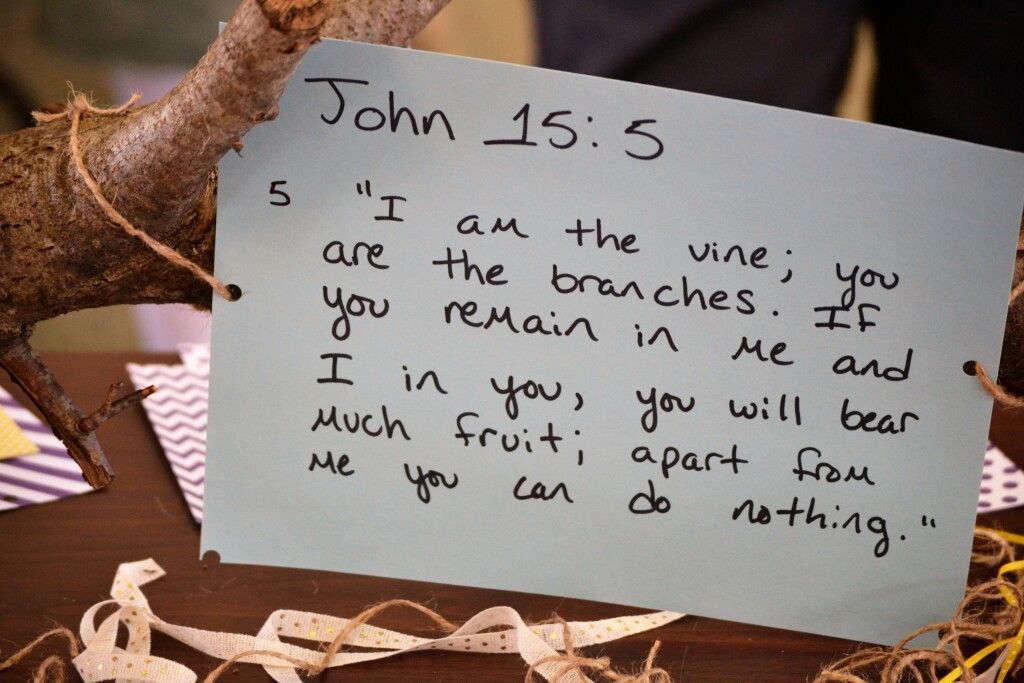 John 15:5
5 "I am the vine; you
are the branches. If
you remain in me and
I in you, you will bear
much fruit; apart from
me you can do nothing."